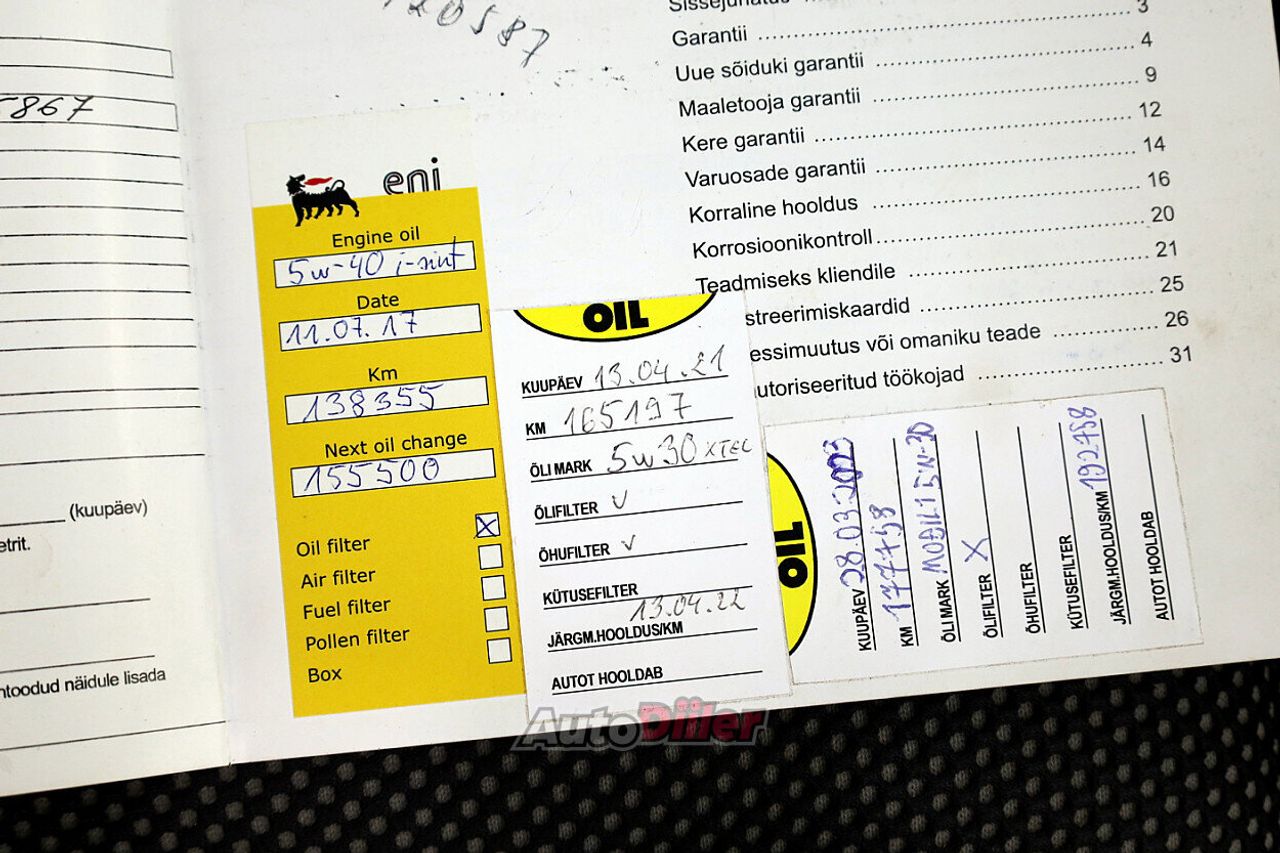 120587
5867
(kuupäev)
etrit.
ntoodud näidule lisada
Sissejuhatus
3
Garantii ........ 4
Uue sõiduki garantii ........ 9
Maaletooja garantii ........ 12
Kere garantii ........ 14
Varuosade garantii ........ 16
Korraline hooldus ........ 20
Korrosioonikontroll ........ 21
Teadmiseks kliendile ........ 25
streerimiskaardid ........ 26
essimuutus või omaniku teade ........ 31
utoriseeritud töökojad ........
eni
Engine oil
5w-40 i-sint
Date
11.07.17
Km
138355
Next oil change
155500
Oil filter X
Air filter
Fuel filter
Pollen filter
Box
OIL
KUUPÄEV 13.04.21
KM 165197
ÕLI MARK 5w30 XTEC
ÕLIFILTER V
ÕHUFILTER V
KÜTUSEFILTER
JÄRGM.HOOLDUS/KM 13.04.22
AUTOT HOOLDAB
OIL
KUUPÄEV 28.03.2023
KM 177758
ÕLI MARK MOBIL1 5W-30
ÕLIFILTER X
ÕHUFILTER
KÜTUSEFILTER
JÄRGM.HOOLDUS/KM 192758
AUTOT HOOLDAB
AutoDiiler